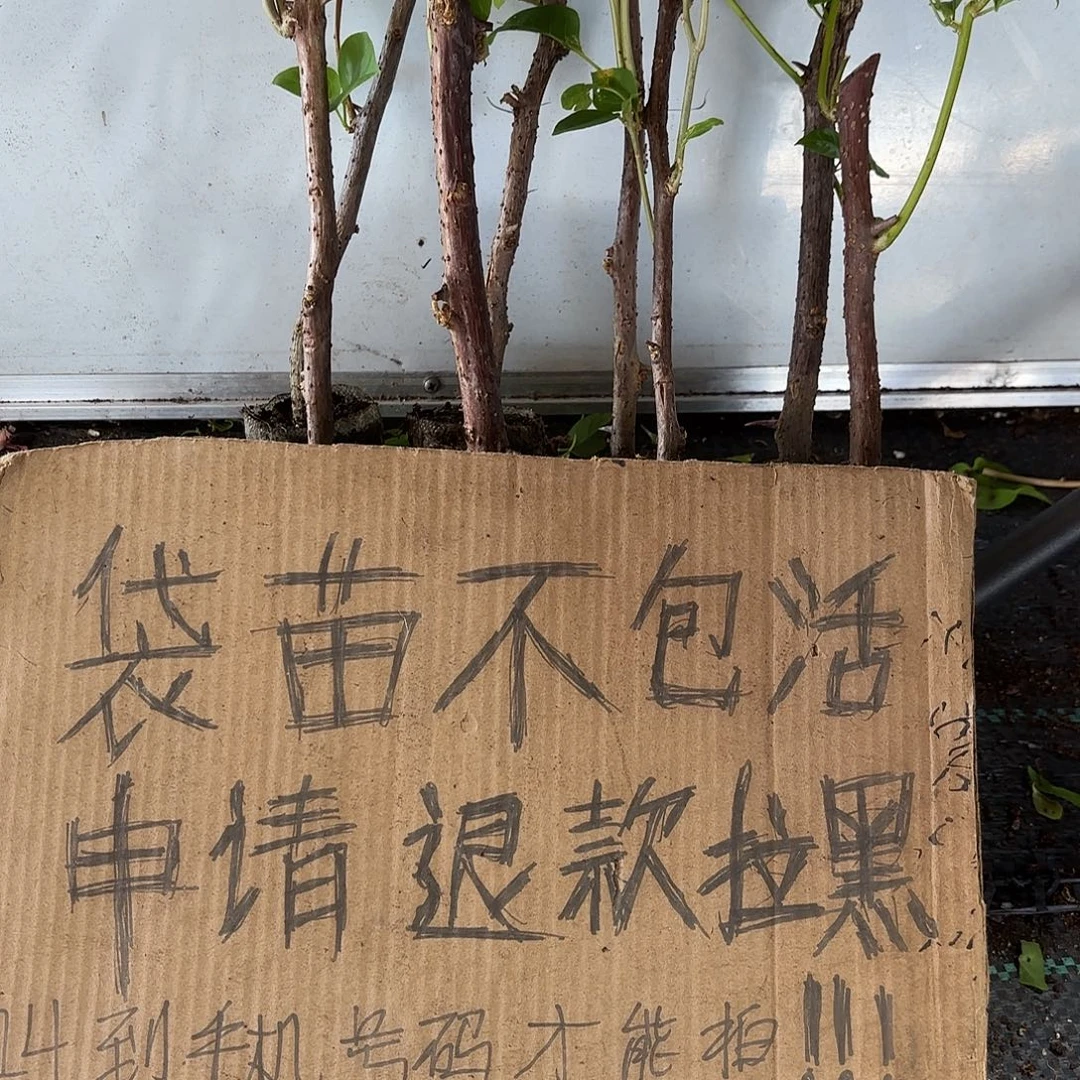 袋苗不包活
申请退款拉黑
到手机号码才能拍!!!